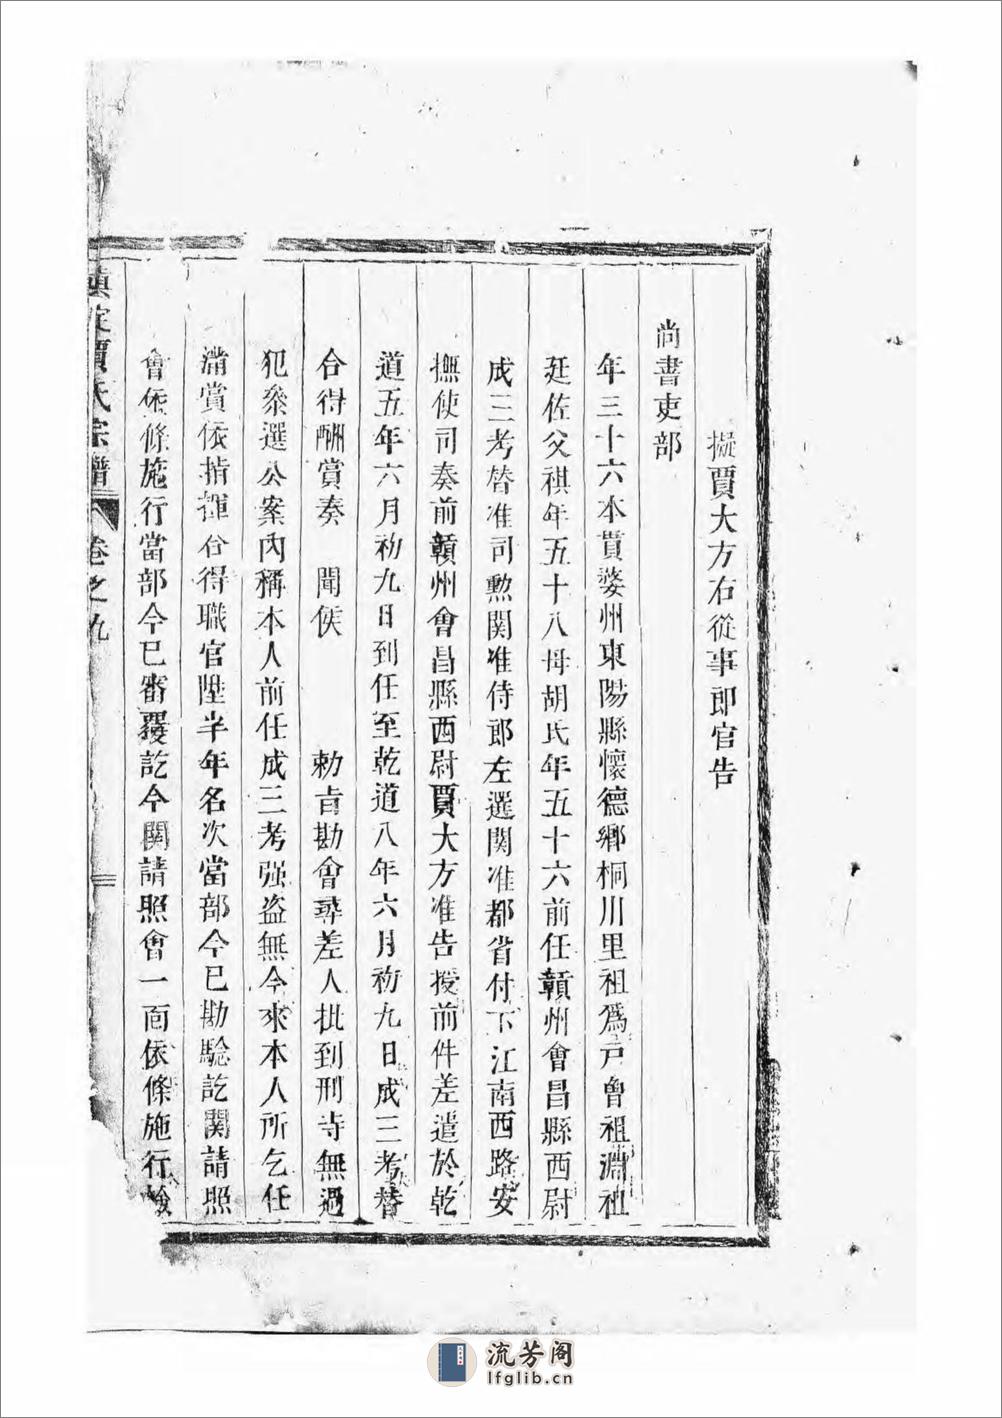 擬賈大方右從事郎官告
尚書吏部
年三十六本貫婺州東陽縣懷德鄉桐川里祖爲戸曾祖淵祖
廷佐父祺年五十八母胡氏年五十六前任贛州會昌縣西尉
成三考替准司勲関准侍郎左選関准都省付下江南西路安
撫使司奏前贛州會昌縣西尉賈大方准告授前件差遣於乾
道五年六月初九日到任至乾道八年六月初九日成三考替
合得酬賞奏　聞俟　　勑旨勘會尋差人批到刑寺無過
犯叅選公案内稱本人前任成三考强盗無今來本人所乞任
滿賞依指揮合得職官陞半年名次當部今已勘驗訖関請照
會依條施行當部今已審覆訖今関請照會一面依條施行檢
眞定賈氏宗譜　卷之九
流芳阁
lfglib.cn